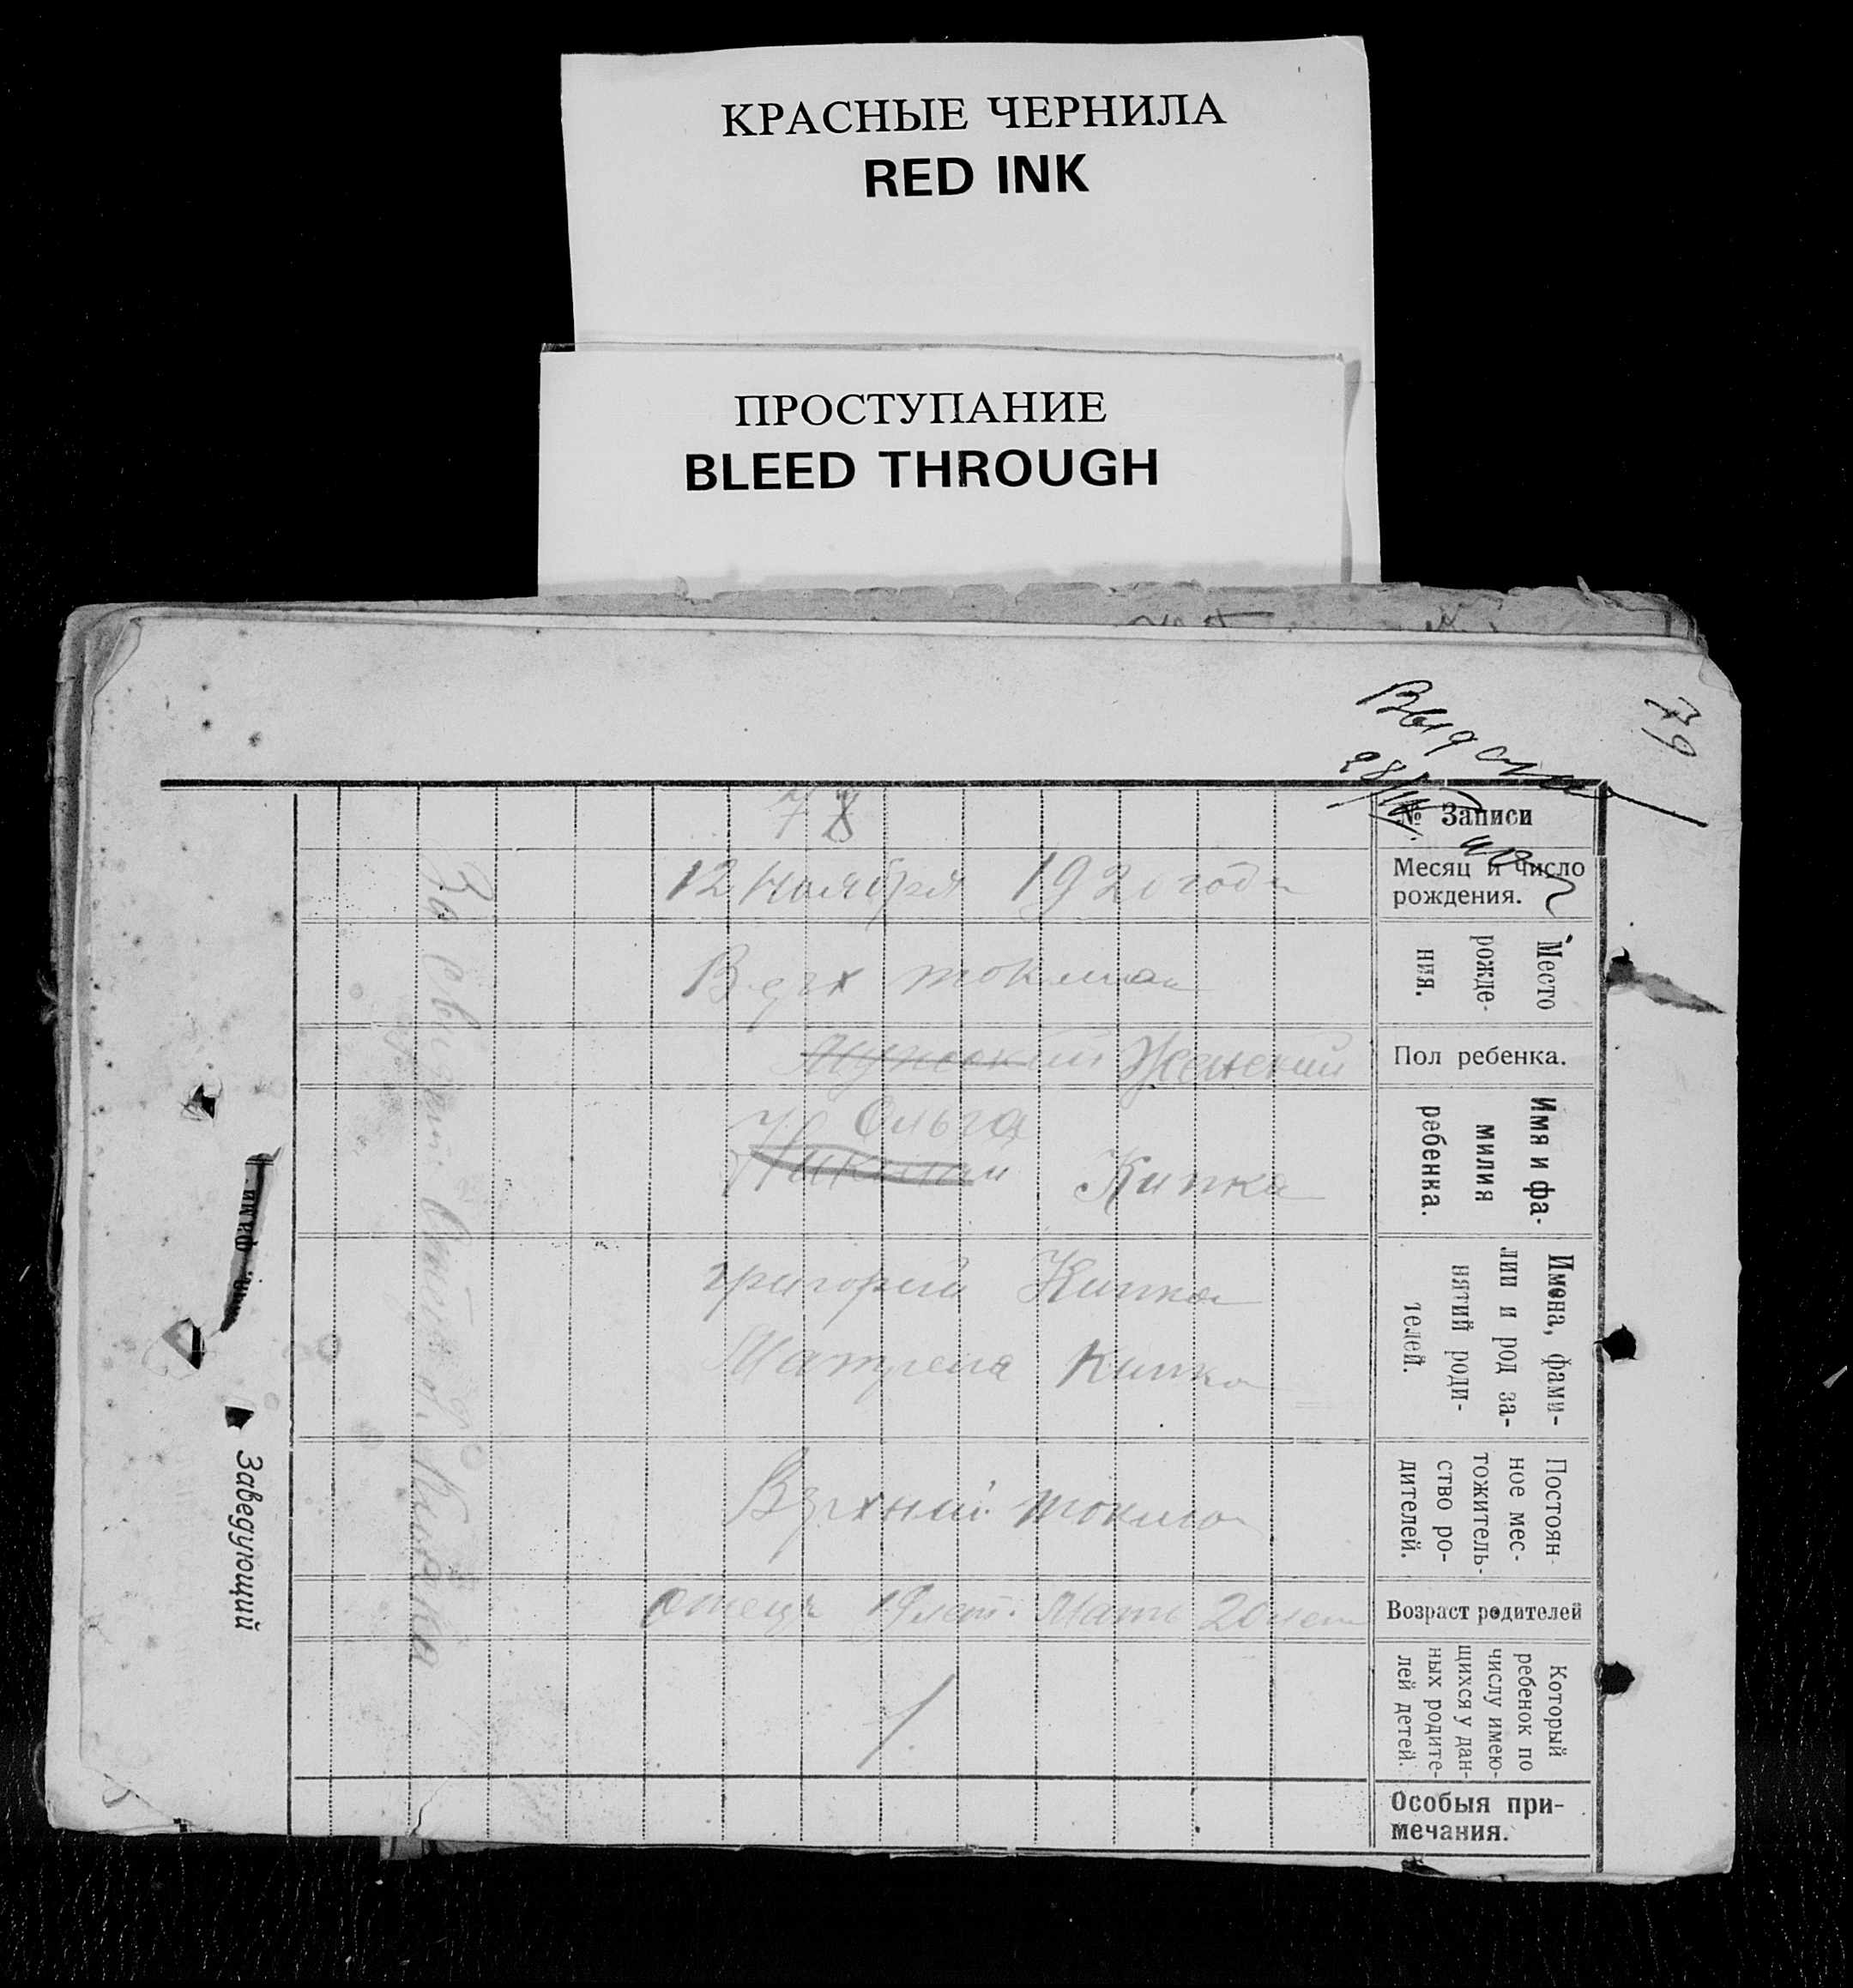 КРАСНЫЕ ЧЕРНИЛА
RED INK
ПРОСТУПАНИЕ
BLEED THROUGH
79
28/IV
№ Записи
78
Месяц и число
рождения.
12 Ноября 1920 года
Место
рожде-
ния.
Верх токмак
Пол ребенка.
Мужской Женский
Имя и фа-
милия
ребенка.
Ольга
Николай Кипка
Имена, фами-
лии и род за-
нятий роди-
телей.
григорий Кипка
Матрена Кипка
Постоян-
ное мес-
тожитель-
ство ро-
дителей.
Верхний токмак
Возраст родителей
Отец 19 лет. Мать 20 лет
Который
ребенок по
числу имею-
щихся у дан-
ных родите-
лей детей.
1
Особыя при-
мечания.
Заведующий